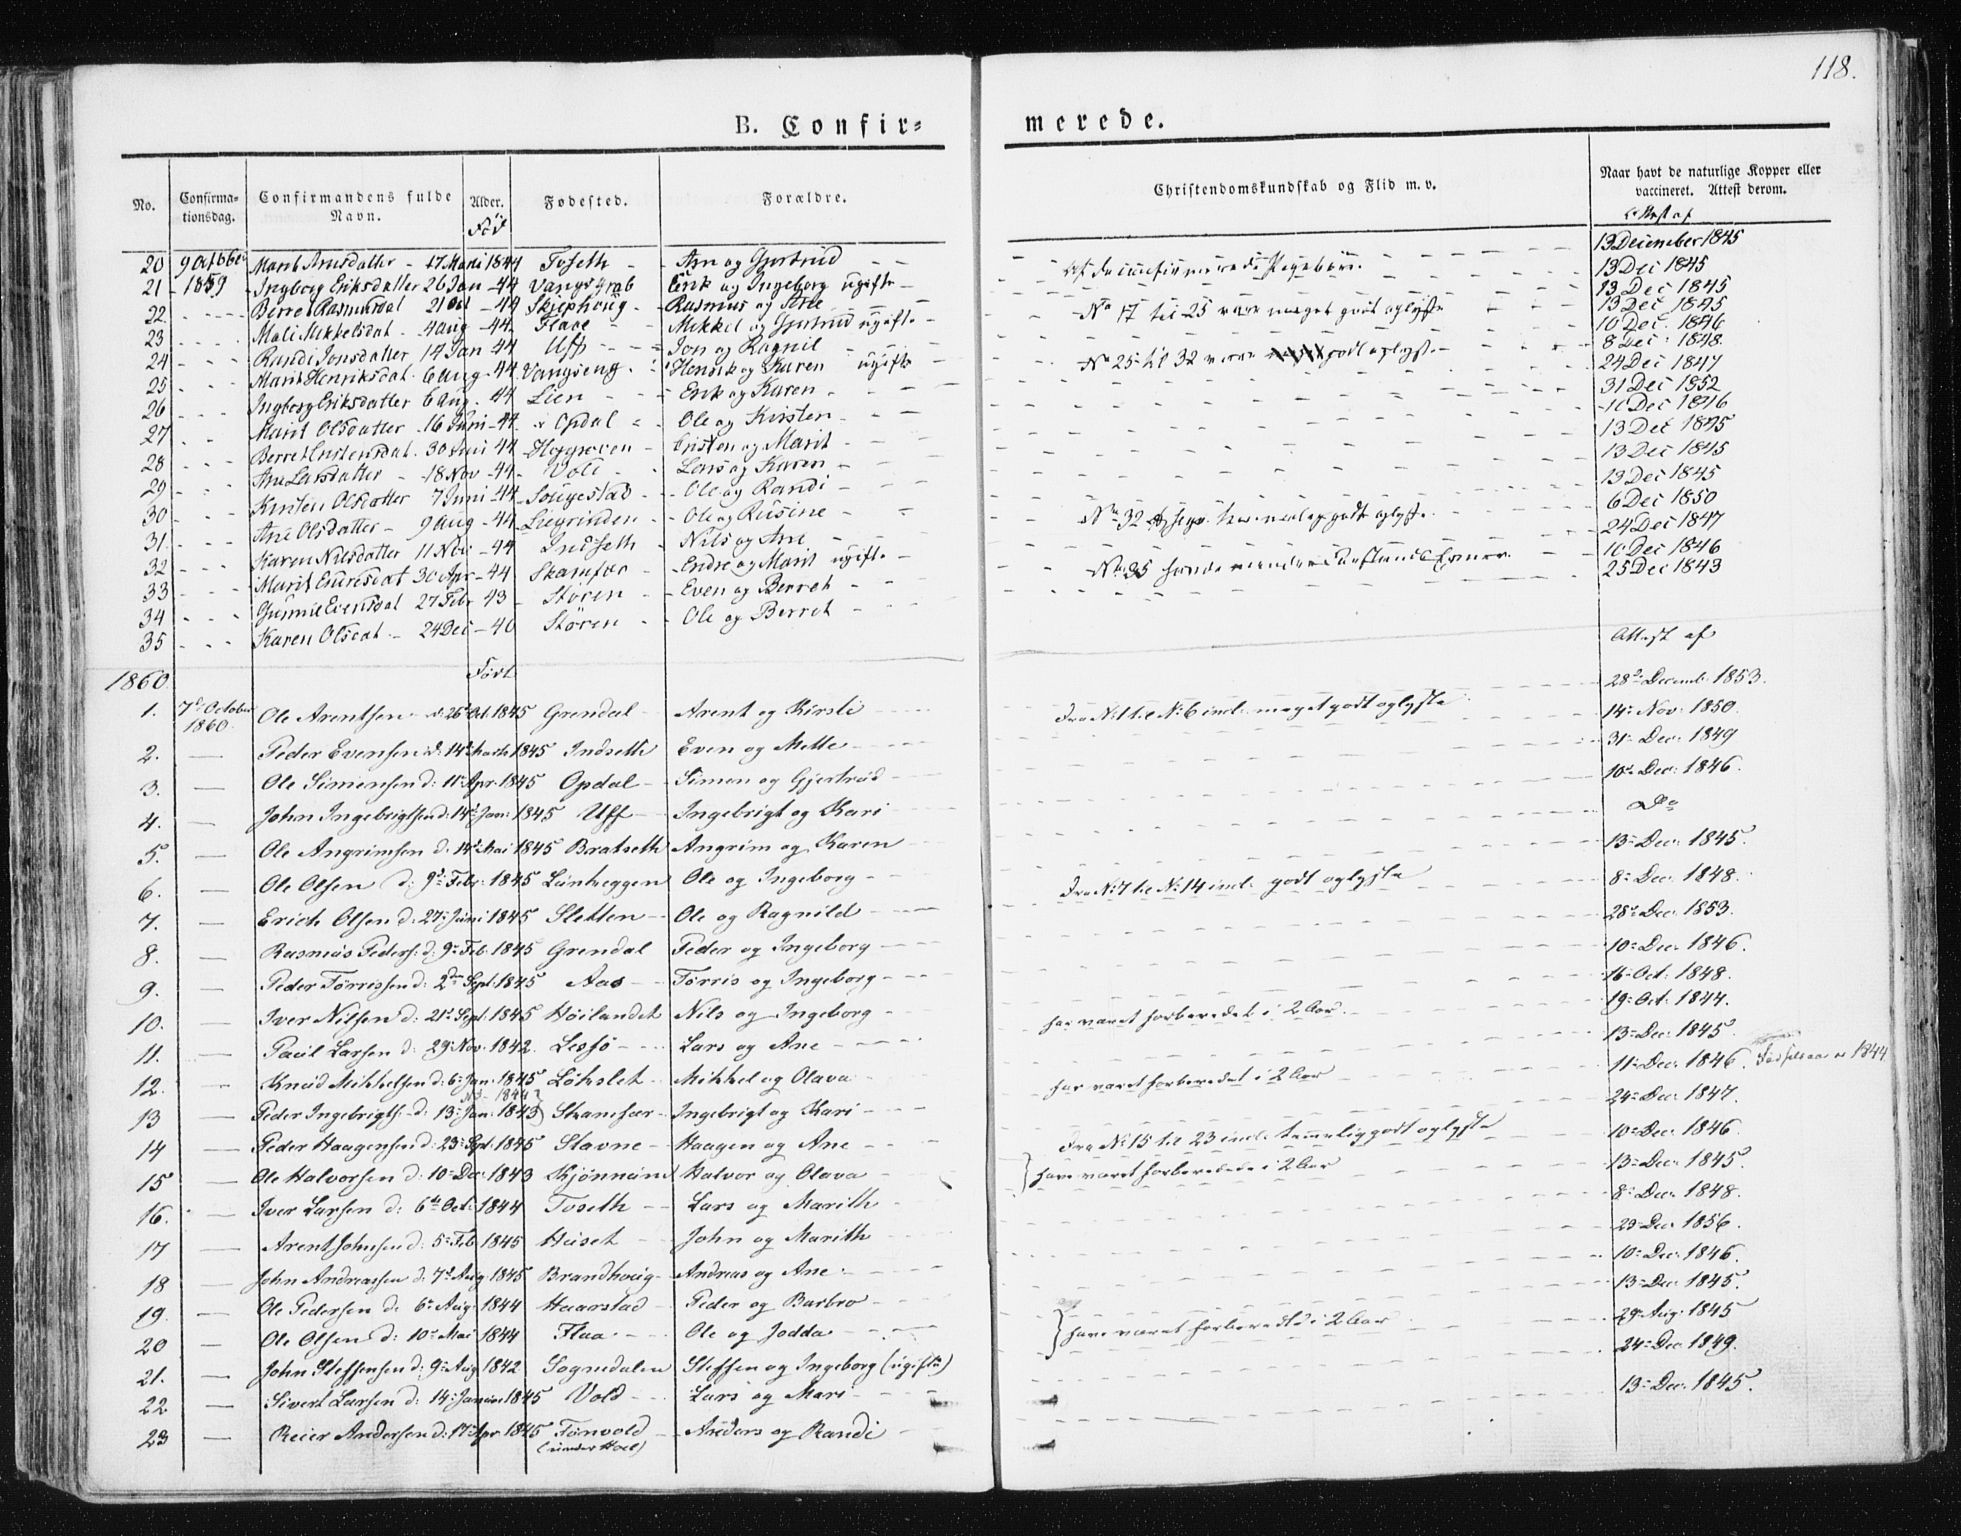 118.
B. Confir= merede.
No. Confirma-tionsdag. Confirmandens fulde Navn. Alder. Fødested. Forældre. Christendomskundskab og Flid m.v. Naar havt de naturlige Kopper eller vaccineret. Attest derom.
Attest af
20 9 October Marit Arnsdatter - 17 Marti 1844 Toseth - Arn og Gjertrud 13 December 1845
21 - 1859 - Ingborg Eriksdatter 26 Jan - 44 Vangsgrab Erik og Ingeborg ugifte - 13 Dec 1845
22 Berret Rasmusdat 21 Oct - 44 Skjephoug - Rasmus og Ane 13 Dec 1845
23 Mali Mikkelsdat - 4 Aug - 44 Flaae - Mikkel og Gjertrud ugifte - No 17 til 25 vare meget godt oplyste 13 Dec 1845
24 Randi Jonsdatter 14 Jan 44 Uff - Jon og Ragnil 10 Dec. 1846
25 Marit Henriksdat. 6 Aug - 44 Vangseng Henrik og Karen ugifte No 25 til 32 vare godt oplyste 8 Dec. 1848
26 Ingborg Eriksdatter 6 Aug. 44 Lien - Erik og Karen 24 Dec 1847
27 Marit Olsdatter - 16 Juni - 44 Opdal Ole og Kirsten 31 Dec 1852
28 Berret Cristensdat. 30 Juni 44 Cristen og Marit 10 Dec 1846
29 Ane Larsdatter - 18 Nov - 44 - Vold Lars og Karen 13 Dec 1845
30 Kirsten Olsdatter 7 Juni - 44 Sougestad Ole og Randi 13 Dec 1845
31 Ane Olsdatter - 9 Aug - 44 Liegrinden - Ole og Rusine 13 Dec 1845
32 Karen Nilsdatter 11 Nov - 44 Indseth - Nils og Ane 6 Dec 1850
33 Marit Endresdat 30 Apr - 44 Skamfær - Endre og Marit ugifte - 24 Dec 1847
34 Gunnil Evensdat 27 Febr 43 Støren - Even og Berret 10 Dec 1846
35 Karen Olsdat - 24 Dec - 40 Støren - Ole og Berret 25 Dec 1843
1860 Født Attest af
1. 7de October 1860. Ole Arentsen d. 26 Oct 1845 Grendal - Arent og Kirsti Fra No 1 til No 6 incl. meget godt oplyste 28de Decemb. 1853.
2. Peder Evensen d: 14de Marts 1845 Indseth Even og Mette 14de Nov. 1850.
3. Ole Simensen d: 11te Apr. 1845 Opdal Simen og Gjertrud 31te Dec. 1849
4. John Ingebrigtsen d: 14de Jan: 1845 Uff Ingebrigt og Kari 10de Dec. 1846.
5. Ole Angrimsen d. 14de Mai 1845 Bratseth Angrim og Karen Do
6. Ole Olsen d: 9de Febr. 1845 Ole og Ingeborg 13de Dec. 1845.
7. Erich Olsen d. 27de Juni 1845 Sletten Ole og Ragnild Fra No 7 til No 14 incl. godt oplyste 8de Dec. 1848.
8. Rasmus Peders: d: 9de Feb. 1845 Grendal Peder og Ingeborg 28de Dec. 1853.
9. Peder Tørrissen d: 2den Sept. 1845 Aas Tørris og Ingeborg 10de Dec. 1846.
10. Iver Nilsen d: 21de Sept. 1845 Høilandet Nils og Ingeborg 16de Oct. 1848.
11. Paul Larsen d: 29de Nov. 1842. Lessø Lars og Ane har været forberedet i 2 Aar. 19de Oct. 1844.
12. Knud Mikkelsen d: 6te Jan. 1845 Løhslet Mikkel og Olava 13de Dec. 1845.
13 Peder Ingebrigts: d: 13de Jan: 1843 NB. 1844? Skamfær Ingebrigt og Kari har været forberedet i 2 Aar 11te Dec. 1846. Fødselsaar er 1844
14 Peder Haagensen d: 23de Sept. 1845 Stavne Haagen og Ane 24de Dec. 1847.
15 Ole Halvorsen d: 10de Dec. 1843 Halvor og Olava Fra No 15 til 23 incl. temmelig godt oplyste have været forberedede i 2 Aar 10de Dec. 1846.
16. Iver Larsen d: 6te Oct. 1844 Toseth Lars og Marith 13de Dec. 1845.
17 Arent Johnsen d: 5te Feb 1845 Huset John og Marith 8de Dec. 1848.
18 John Andreassen d: 7de Aug 1845 Brandhoug Andreas og Ane 23de Dec. 1856.
19. Ole Pedersen d: 6te Aug. 1844 Haarstad Peder og Barbro 10de Dec. 1846.
20 Ole Olsen d: 10de Mai 1844 Flaa Ole og Jodda have været forberedede i 2 Aar 13de Dec. 1845.
21. John Steffensen d: 9de Aug 1842 Sognedalen Steffen og Ingeborg (ugifte) 29de Aug. 1845
22 Sivert Larsen d: 14de Januar 1845 Vold Lars og Mari 24de Dec. 1849.
23 Reier Andersen d: 17de Apr 1845 Tønvold (under Hoel) Anders og Randi 13de Dec. 1845.